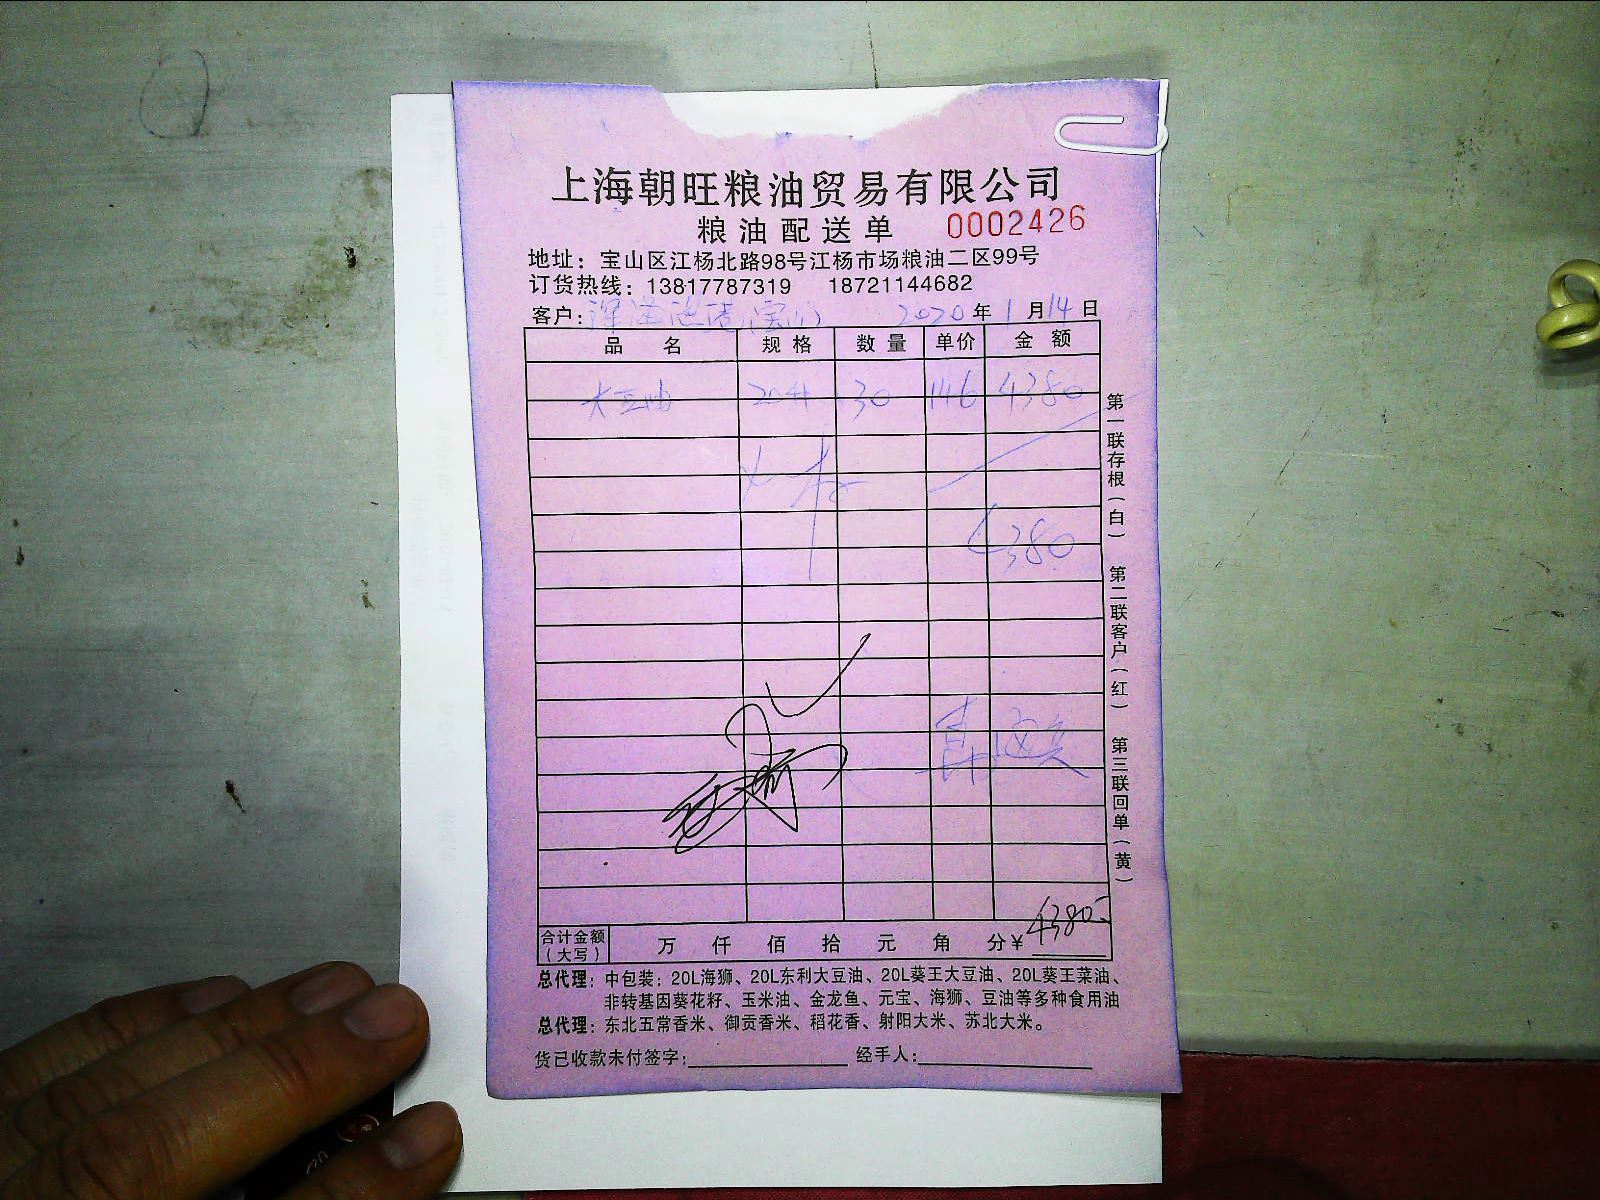 上海朝旺粮油贸易有限公司
粮油配送单 0002426
地址：宝山区江杨北路98号江杨市场粮油二区99号
订货热线：13817787319 18721144682
客户： 2020年1月14日
品名 规格 数量 单价 金额
大豆油 20升 30 146 4380
4380
第一联存根（白） 第二联客户（红） 第三联回单（黄）
合计金额（大写） 万 仟 佰 拾 元 角 分¥ 4380
总代理：中包装：20L海狮、20L东利大豆油、20L葵王大豆油、20L葵王菜油、
非转基因葵花籽、玉米油、金龙鱼、元宝、海狮、豆油等多种食用油
总代理：东北五常香米、御贡香米、稻花香、射阳大米、苏北大米。
货已收款未付签字： 经手人：